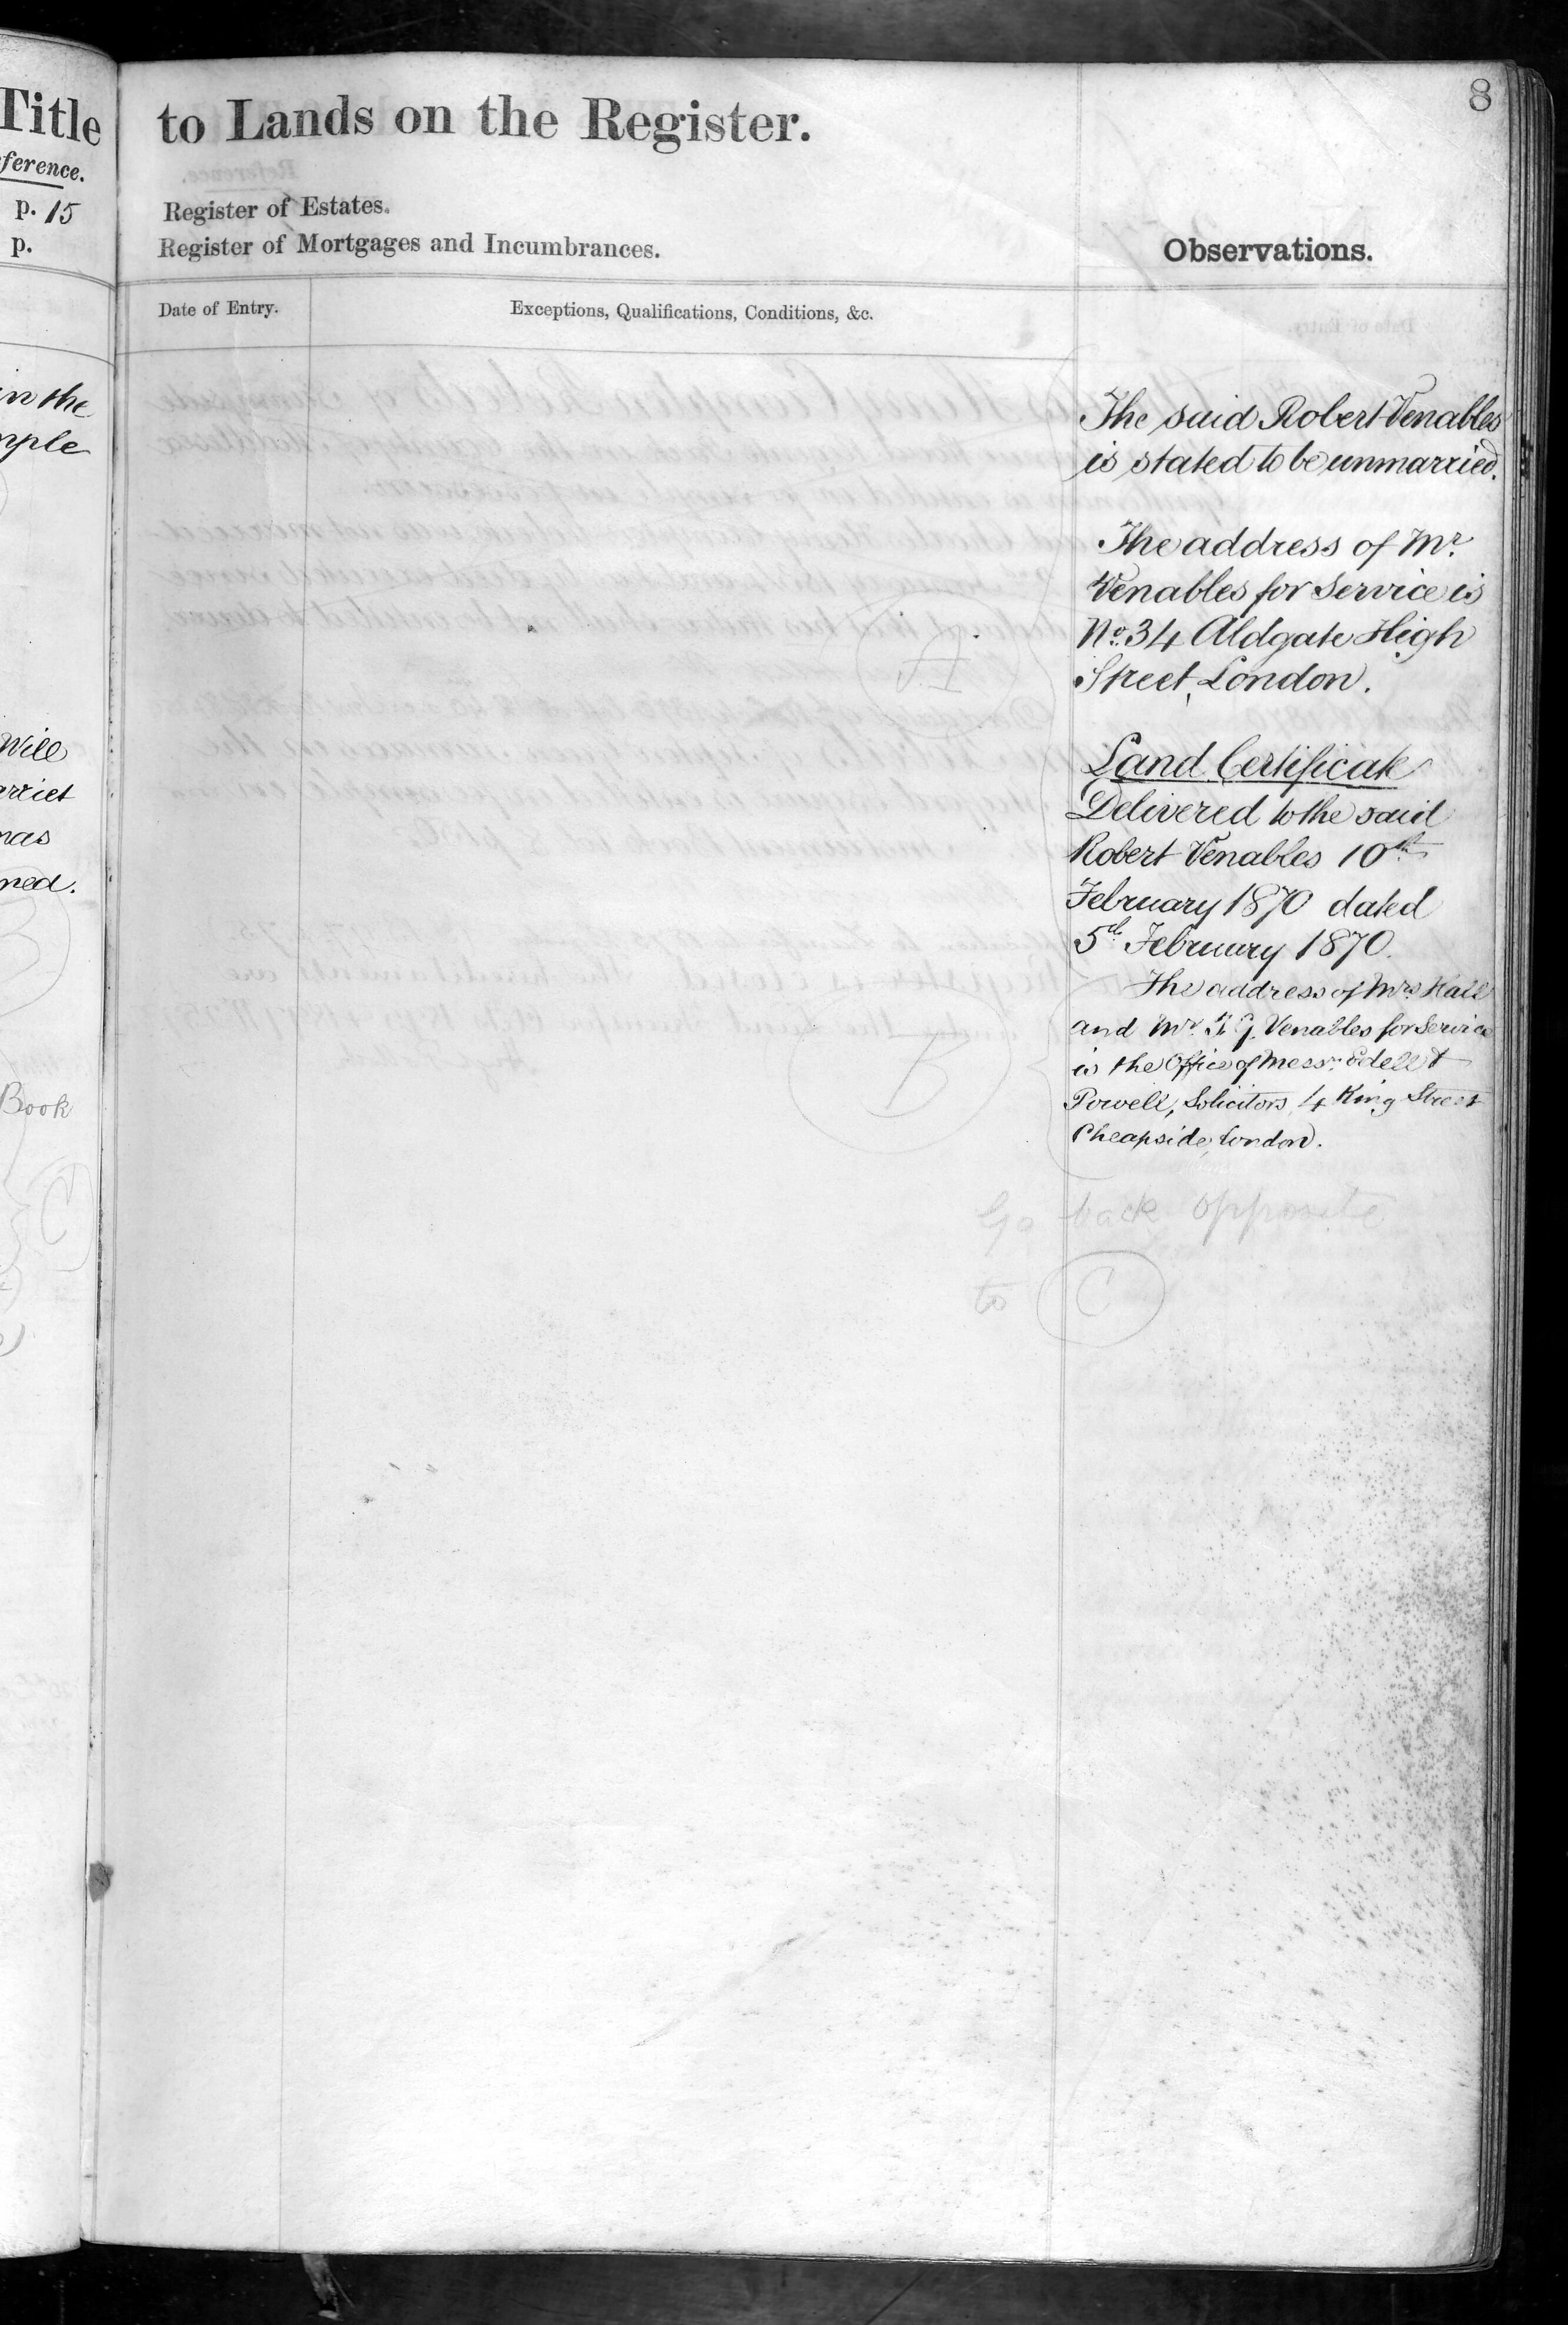 Title
ference.
p. 15
p.
in the
mple
Will
rriet
mas
ned.
Book
C
8
to Lands on the Register.
Register of Estates.
Register of Mortgages and Incumbrances.
Observations.
Date of Entry.
Exceptions, Qualifications, Conditions, &c.
The said Robert Venables
is stated to be unmarried.
The address of Mr.
Venables for Service is
No. 34 Aldgate High
Street, London.
A
Land Certificate
Delivered to the said
Robert Venables 10th
February 1870 dated
5th February 1870.
The address of Mrs
and Mr. T. G. Venables for Service
is the Office of Messrs. Edell &
Powell, Solicitors, 4 King Street
Cheapside, London.
B
Go back opposite
to C